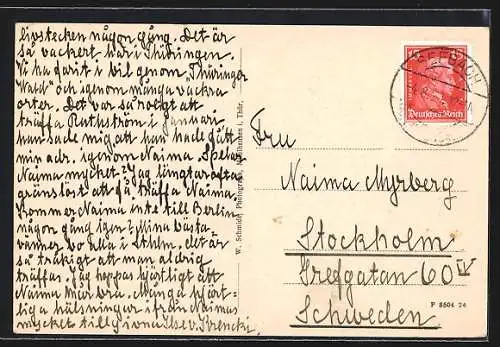 livstecken någon gång. Det är
så vackert här i Thüringen.
Vi ha varit i bil genom "Thüringer
Wald" och igenom många vackra
orter. Det var så roligt att
träffa Ruthström i Januari
han sade mig att han hade fått
min adr. igenom Naima. Spelar
Naima mycket? Jag längtar ofta
gränslöst att få träffa Naima.
Kommer Naima inte till Berlin
någon gång igen? Mina bästa
vänner bo alla i Sthlm. det är
så tråkigt att man aldrig
träffas. Jag hoppas hjärtligt att
Naima mår bra. Många hjärt-
liga hälsningar ifrån Naimas
mycket tillgivna Ilse v. Krencki
W. Schmidt, Photograph, i. Thür.
Deutsches Reich
SEEBACH
Frau
Naima Myrberg
Stockholm
Grefgatan 60
Schweden
F 8604 24